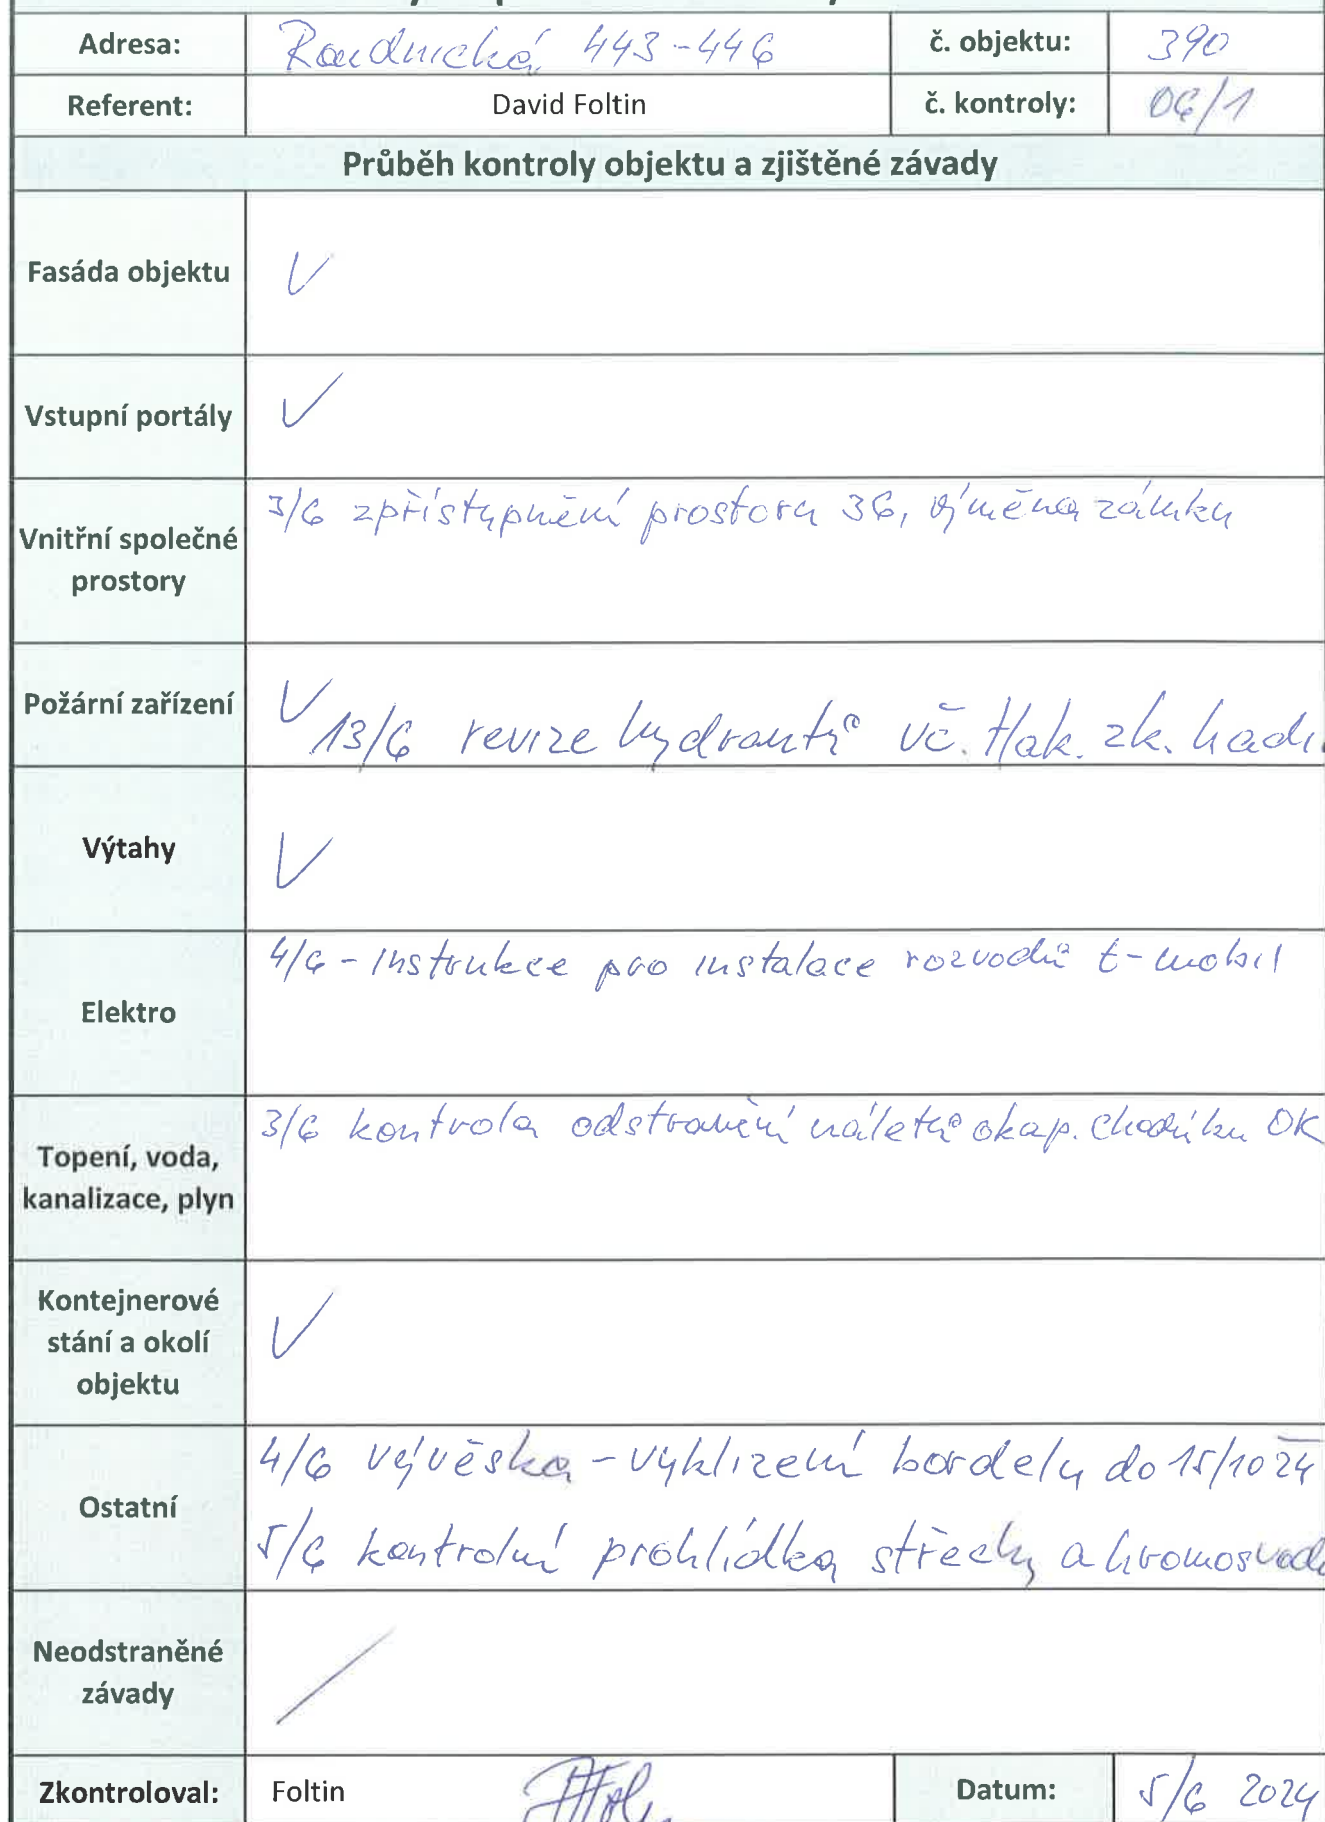 Adresa: Roudnická 443-446 č. objektu: 390
Referent: David Foltin č. kontroly: 06/1
Průběh kontroly objektu a zjištěné závady
Fasáda objektu V
Vstupní portály V
Vnitřní společné prostory 3/6 zpřístupnění prostoru 36, výměna zámku
Požární zařízení V 13/6 revize hydrantů vč. tlak. zk. hadi
Výtahy V
Elektro 4/6 - instrukce pro instalace rozvodů t-mobil
Topení, voda, kanalizace, plyn 3/6 kontrola odstranění náletů okap. chodníku OK
Kontejnerové stání a okolí objektu V
Ostatní 4/6 vývěska - vyklizení bordelu do 15/10 24
5/6 kontrolní prohlídka střechy a hromosvodu
Neodstraněné závady /
Zkontroloval: Foltin Datum: 5/6 2024